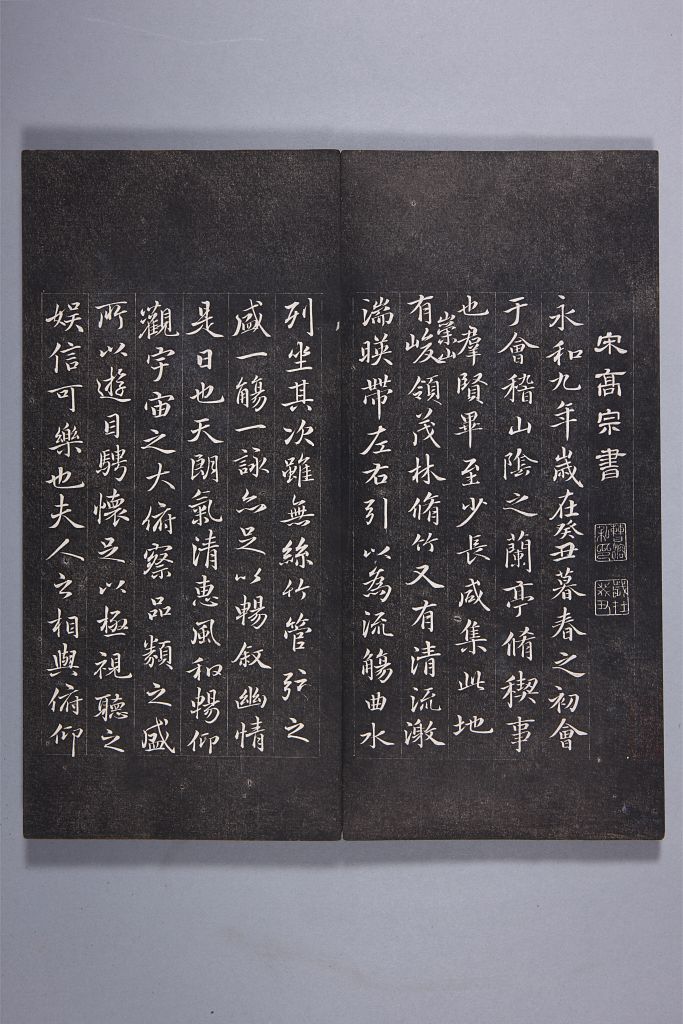 宋髙宗書
永和九年歲在癸丑暮春之初會
于會稽山陰之蘭亭脩稧事
也羣賢畢至少長咸集此地
有崇山峻領茂林脩竹又有清流激
湍暎帶左右引以為流觴曲水
列坐其次雖無絲竹管弦之
盛一觴一詠亦足以暢叙幽情
是日也天朗氣清惠風和暢仰
觀宇宙之大俯察品類之盛
所以遊目騁懷足以極視聽之
娱信可樂也夫人之相與俯仰